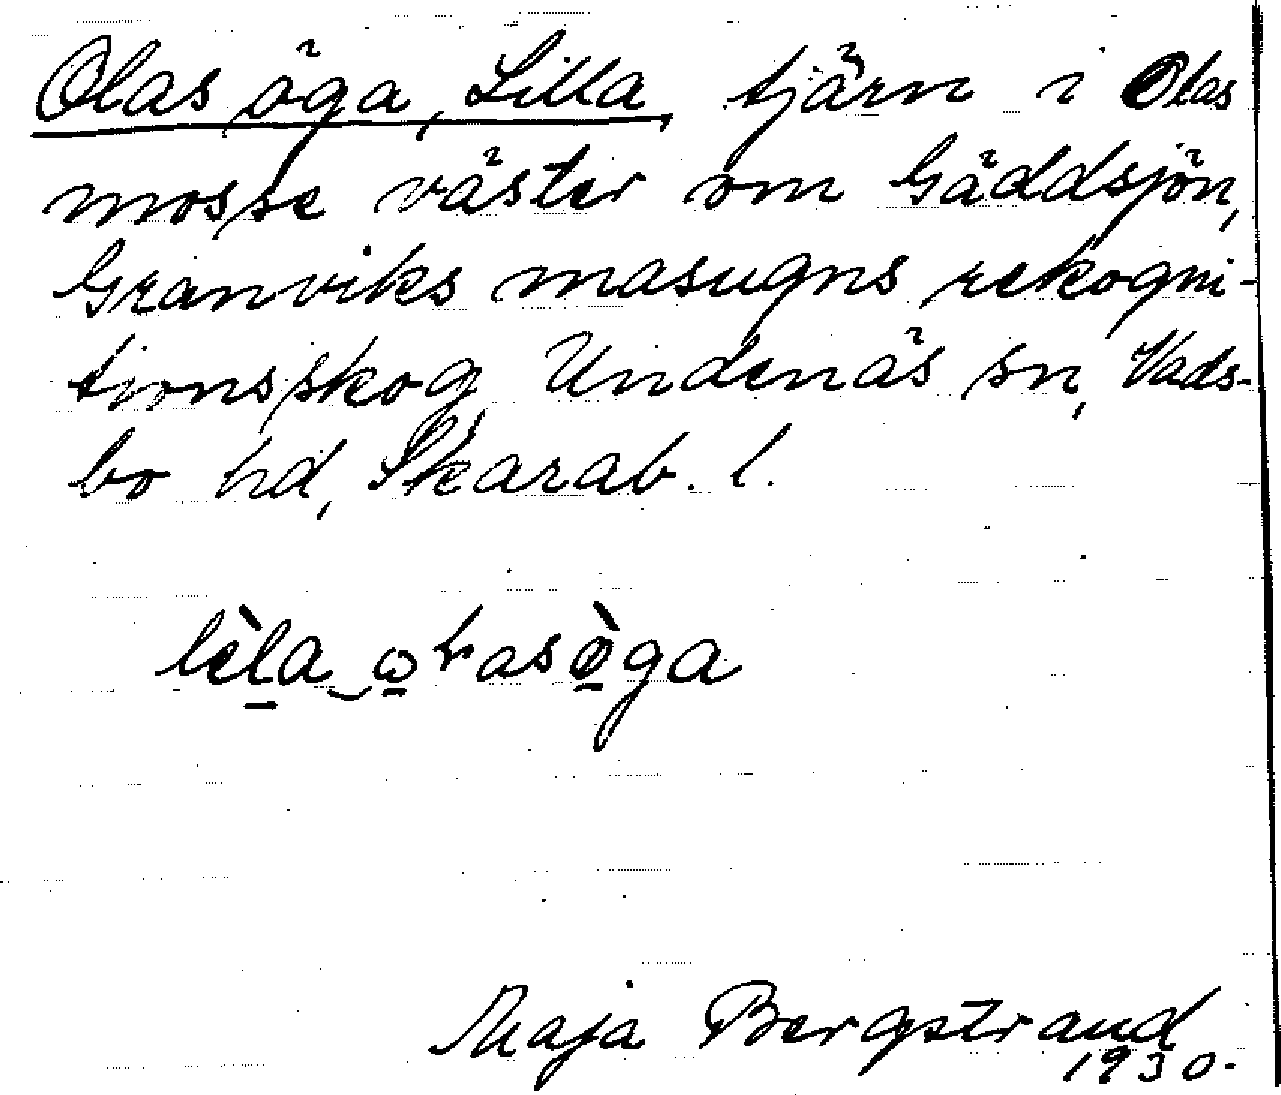 Olas öga, Lilla, tjärn i Olas
mosse väster om Gäddsjön,
Granviks masugns rekogni-
tionsskog, Undenäs sn, Vads-
bo hd, Skarab. l.
Maja Bergstrand
1930.